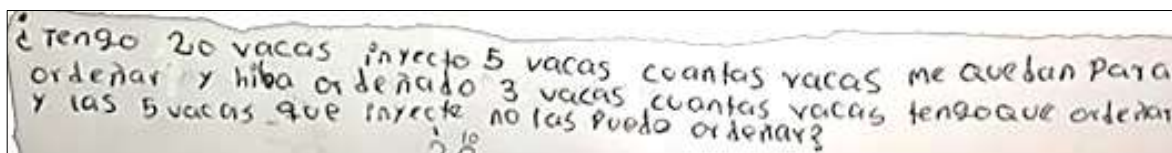 ¿Tengo 20 vacas inyecto 5 vacas cuantas vacas me quedan para
ordeñar y hiba ordeñado 3 vacas cuantas vacas tengo que ordeñar
y las 5 vacas que inyecte no las puedo ordeñar?